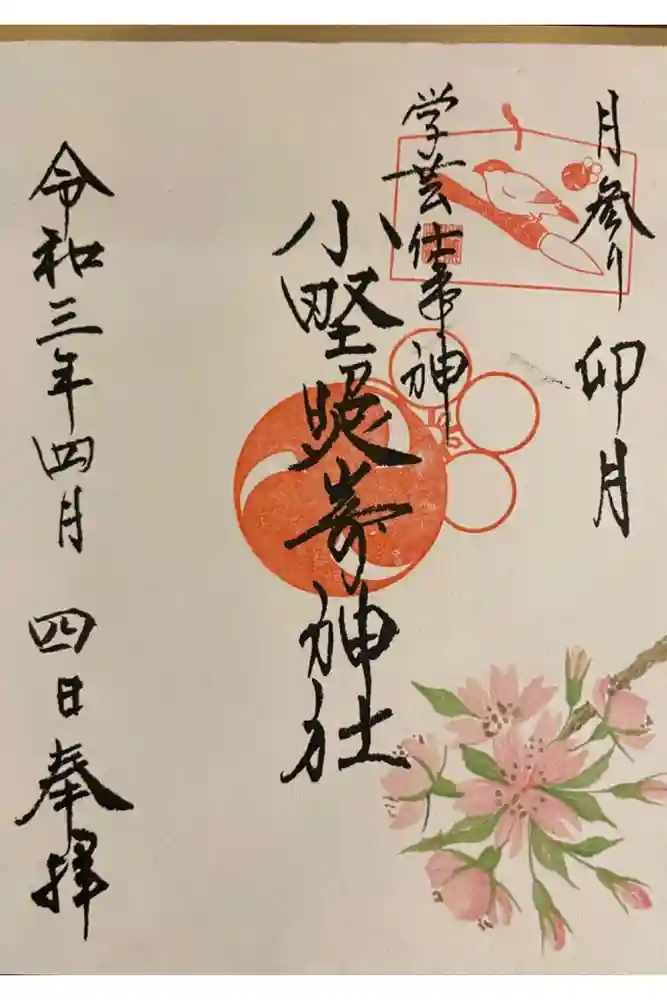 月参り 卯月
学芸仕事神
小野照嵜神社
令和三年四月 四日奉拝